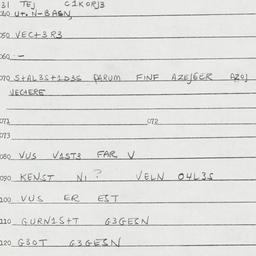 31 TEJ C1KORJ3
040 U+. N-BAEN,
050 VEC+3R3
060 -
070 S+AL3S+1D3S PARUM FINF AZEJEER AZOJ
VECHERE
071 072
073
080 VUS V1ST3 FAR V
090 KENST NI? VELN 04L3S
100 VUS ER EST
110 GURN1S+T G3GESN
120 G3OT G3GESN